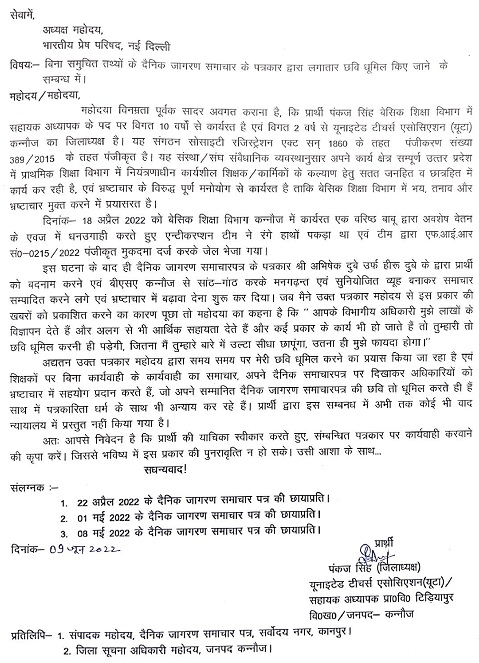 सेवामें,
अध्यक्ष महोदय,
भारतीय प्रेष परिषद, नई दिल्ली
विषयः– बिना समुचित तथ्यों के दैनिक जागरण समाचार के पत्रकार द्वारा लगातार छवि धूमिल किए जाने के
सम्बन्ध में।
महोदय/महोदया,
महोदया विनम्रता पूर्वक सादर अवगत कराना है, कि प्रार्थी पंकज सिंह बेसिक शिक्षा विभाग में
सहायक अध्यापक के पद पर विगत 10 वर्षो से कार्यरत है एवं विगत 2 वर्ष से यूनाइटेड टीचर्स एसोसिएशन (यूटा)
कन्नौज का जिलाध्यक्ष है। यह संगठन सोसाइटी रजिस्ट्रेशन एक्ट सन् 1860 के तहत पंजीकरण संख्या
389/2015 के तहत पंजीकृत है। यह संस्था/संघ संवैधानिक व्यवस्थानुसार अपने कार्य क्षेत्र सम्पूर्ण उत्तर प्रदेश
में प्राथमिक शिक्षा विभाग में नियंत्रणाधीन कार्यशील शिक्षक/कार्मिकों के कल्याण हेतु सतत जनहित व छात्रहित में
कार्य कर रही है, एवं भ्रष्टाचार के विरुद्ध पूर्ण मनोयोग से कार्यरत है ताकि बेसिक शिक्षा विभाग में भय, तनाव और
भ्रष्टाचार मुक्त करने में प्रयासरत है।
दिनांक– 18 अप्रैल 2022 को बेसिक शिक्षा विभाग कन्नौज में कार्यरत एक वरिष्ठ बाबू द्वारा अवशेष वेतन
के एवज में धनउगाही करते हुए एन्टीकरप्शन टीम ने रंगे हाथों पकड़ा था एवं टीम द्वारा एफ.आई.आर
सं0–0215/2022 पंजीकृत मुकदमा दर्ज करके जेल भेजा गया।
इस घटना के बाद ही दैनिक जागरण समाचारपत्र के पत्रकार श्री अभिषेक दुबे उर्फ हीरू दुबे के द्वारा प्रार्थी
को बदनाम करने एवं बीएसए कन्नौज से सांठ–गांठ करके मनगढ़न्त एवं सुनियोजित व्यूह बनाकर समाचार
सम्पादित करने लगे एवं भ्रष्टाचार में बढ़ावा देना शुरू कर दिया। जब मैने उक्त पत्रकार महोदय से इस प्रकार की
खबरों को प्रकाशित करने का कारण पूछा तो महोदया का कहना है कि “ आपके विभागीय अधिकारी मुझे लाखों के
विज्ञापन देते हैं और अलग से भी आर्थिक सहायता देते हैं और कई प्रकार के कार्य भी हो जाते हैं तो तुम्हारी तो
छवि धूमिल करनी ही पड़ेगी, जितना मैं तुम्हारे बारे में उल्टा सीधा छापूंगा, उतना ही मुझे फायदा होगा।”
अद्यतन उक्त पत्रकार महोदय द्वारा समय समय पर मेरी छवि धूमिल करने का प्रयास किया जा रहा है एवं
शिक्षकों पर बिना कार्यवाही के कार्यवाही का समाचार, अपने दैनिक समाचारपत्र पर दिखाकर अधिकारियों को
भ्रष्टाचार में सहयोग प्रदान करते हैं, जो अपने सम्मानित दैनिक जागरण समाचारपत्र की छवि तो धूमिल करते ही हैं
साथ में पत्रकारिता धर्म के साथ भी अन्याय कर रहे हैं। प्रार्थी द्वारा इस सम्बनध में अभी तक कोई भी वाद
न्यायालय में प्रस्तुत नहीं किया गया है।
अतः आपसे निवेदन है कि प्रार्थी की याचिका स्वीकार करते हुए, संम्बन्धित पत्रकार पर कार्यवाही करवाने
की कृपा करें। जिससे भविष्य में इस प्रकार की पुनरावृत्ति न हो सके। उसी आशा के साथ...
सधन्यवाद!
संलग्नक :–
1. 22 अप्रैल 2022 के दैनिक जागरण समाचार पत्र की छायाप्रति।
2. 01 मई 2022 के दैनिक जागरण समाचार पत्र की छायाप्रति।
3. 08 मई 2022 के दैनिक जागरण समाचार पत्र की छायाप्रति।
दिनांक– 09 जून 2022
प्रार्थी
पंकज सिंह (जिलाध्यक्ष)
यूनाइटेड टीचर्स एसोसिएशन(यूटा)/
सहायक अध्यापक प्रा0वि0 टिड़ियापुर
वि0ख0/जनपद– कन्नौज
प्रतिलिपि– 1. संपादक महोदय, दैनिक जागरण समाचार पत्र, सर्वोदय नगर, कानपुर।
2. जिला सूचना अधिकारी महोदय, जनपद कन्नौज।